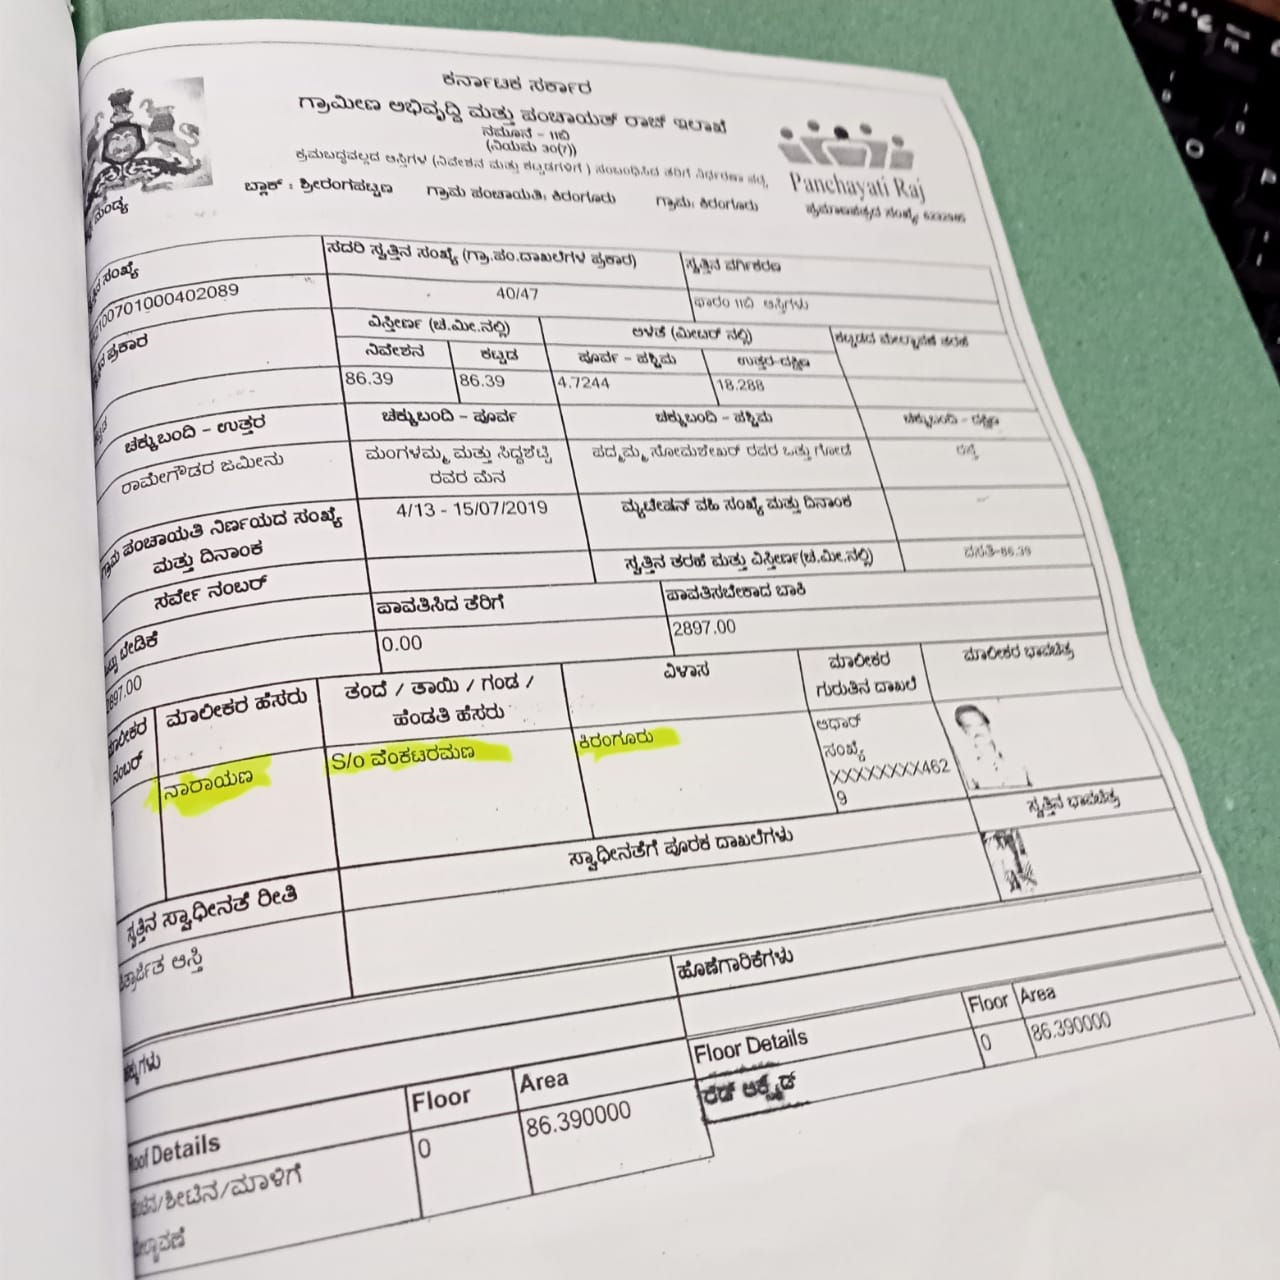 ಕರ್ನಾಟಕ ಸರ್ಕಾರ
ಗ್ರಾಮೀಣ ಅಭಿವೃದ್ಧಿ ಮತ್ತು ಪಂಚಾಯತ್ ರಾಜ್ ಇಲಾಖೆ
ನಮೂನೆ - 11ಬಿ
(ನಿಯಮ 30(7))
ಕ್ರಮಬದ್ಧವಲ್ಲದ ಆಸ್ತಿಗಳ (ನಿವೇಶನ ಮತ್ತು ಕಟ್ಟಡಗಳಿಗೆ ) ಸಂಬಂಧಿಸಿದ ತೆರಿಗೆ ನಿರ್ಧರಣಾ ಪಟ್ಟಿ
Panchayati Raj
ಮಂಡ್ಯ
ಬ್ಲಾಕ್ : ಶ್ರೀರಂಗಪಟ್ಟಣ ಗ್ರಾಮ ಪಂಚಾಯತಿ: ಕಿರಂಗೂರು ಗ್ರಾಮ: ಕಿರಂಗೂರು ಪ್ರಮಾಣಪತ್ರದ ಸಂಖ್ಯೆ
ಸಂಖ್ಯೆ ಸದರಿ ಸ್ವತ್ತಿನ ಸಂಖ್ಯೆ (ಗ್ರಾ.ಪಂ.ದಾಖಲೆಗಳ ಪ್ರಕಾರ) ಸ್ವತ್ತಿನ ವರ್ಗೀಕರಣ
100701000402089 40/47 ಫಾರಂ 11ಬಿ ಆಸ್ತಿಗಳು
ಪ್ರಕಾರ ವಿಸ್ತೀರ್ಣ (ಚ.ಮೀ.ನಲ್ಲಿ) ಅಳತೆ (ಮೀಟರ್ ನಲ್ಲಿ) ಕಟ್ಟಡದ ಮೇಲ್ಛಾವಣಿ ತರಹೆ
ನಿವೇಶನ ಕಟ್ಟಡ ಪೂರ್ವ - ಪಶ್ಚಿಮ ಉತ್ತರ-ದಕ್ಷಿಣ
86.39 86.39 4.7244 18.288
ಚಕ್ಕುಬಂದಿ - ಉತ್ತರ ಚಕ್ಕುಬಂದಿ - ಪೂರ್ವ ಚಕ್ಕುಬಂದಿ - ಪಶ್ಚಿಮ ಚಕ್ಕುಬಂದಿ - ದಕ್ಷಿಣ
ರಾಮೇಗೌಡರ ಜಮೀನು ಮಂಗಳಮ್ಮ ಮತ್ತು ಸಿದ್ದಶೆಟ್ಟಿ ಪದ್ಮಮ್ಮ ಸೋಮಶೇಖರ್ ರವರ ಒತ್ತು ಗೋಡೆ ರಸ್ತೆ
ರವರ ಮನೆ
ಗ್ರಾಮ ಪಂಚಾಯತಿ ನಿರ್ಣಯದ ಸಂಖ್ಯೆ 4/13 - 15/07/2019 ಮ್ಯುಟೇಷನ್ ವಹಿ ಸಂಖ್ಯೆ ಮತ್ತು ದಿನಾಂಕ
ಮತ್ತು ದಿನಾಂಕ
ಸರ್ವೇ ನಂಬರ್ ಸ್ವತ್ತಿನ ತರಹೆ ಮತ್ತು ವಿಸ್ತೀರ್ಣ(ಚ.ಮೀ.ನಲ್ಲಿ) ವಸತಿ-86.39
ಬೇಡಿಕೆ ಪಾವತಿಸಿದ ತೆರಿಗೆ ಪಾವತಿಸಬೇಕಾದ ಬಾಕಿ
2897.00 0.00 2897.00
ಮಾಲೀಕರ ಮಾಲೀಕರ ಹೆಸರು ತಂದೆ / ತಾಯಿ / ಗಂಡ / ವಿಳಾಸ ಮಾಲೀಕರ ಮಾಲೀಕರ ಭಾವಚಿತ್ರ
ನಂಬರ್ ಹೆಂಡತಿ ಹೆಸರು ಗುರುತಿನ ದಾಖಲೆ
ನಾರಾಯಣ S/o ವೆಂಕಟರಮಣ ಕಿರಂಗೂರು ಆಧಾರ್
ಸಂಖ್ಯೆ
XXXXXXXX462
9
ಸ್ವತ್ತಿನ ಭಾವಚಿತ್ರ
ಸ್ವತ್ತಿನ ಸ್ವಾಧೀನತೆ ರೀತಿ ಸ್ವಾಧೀನತೆಗೆ ಪೂರಕ ದಾಖಲೆಗಳು
ಆಸ್ತಿ
ಹೊಣೆಗಾರಿಕೆಗಳು
Roof Details Floor Area Floor Details Floor Area
0 86.390000 ರೆಡ್ ಆಕ್ಸೈಡ್ 0 86.390000